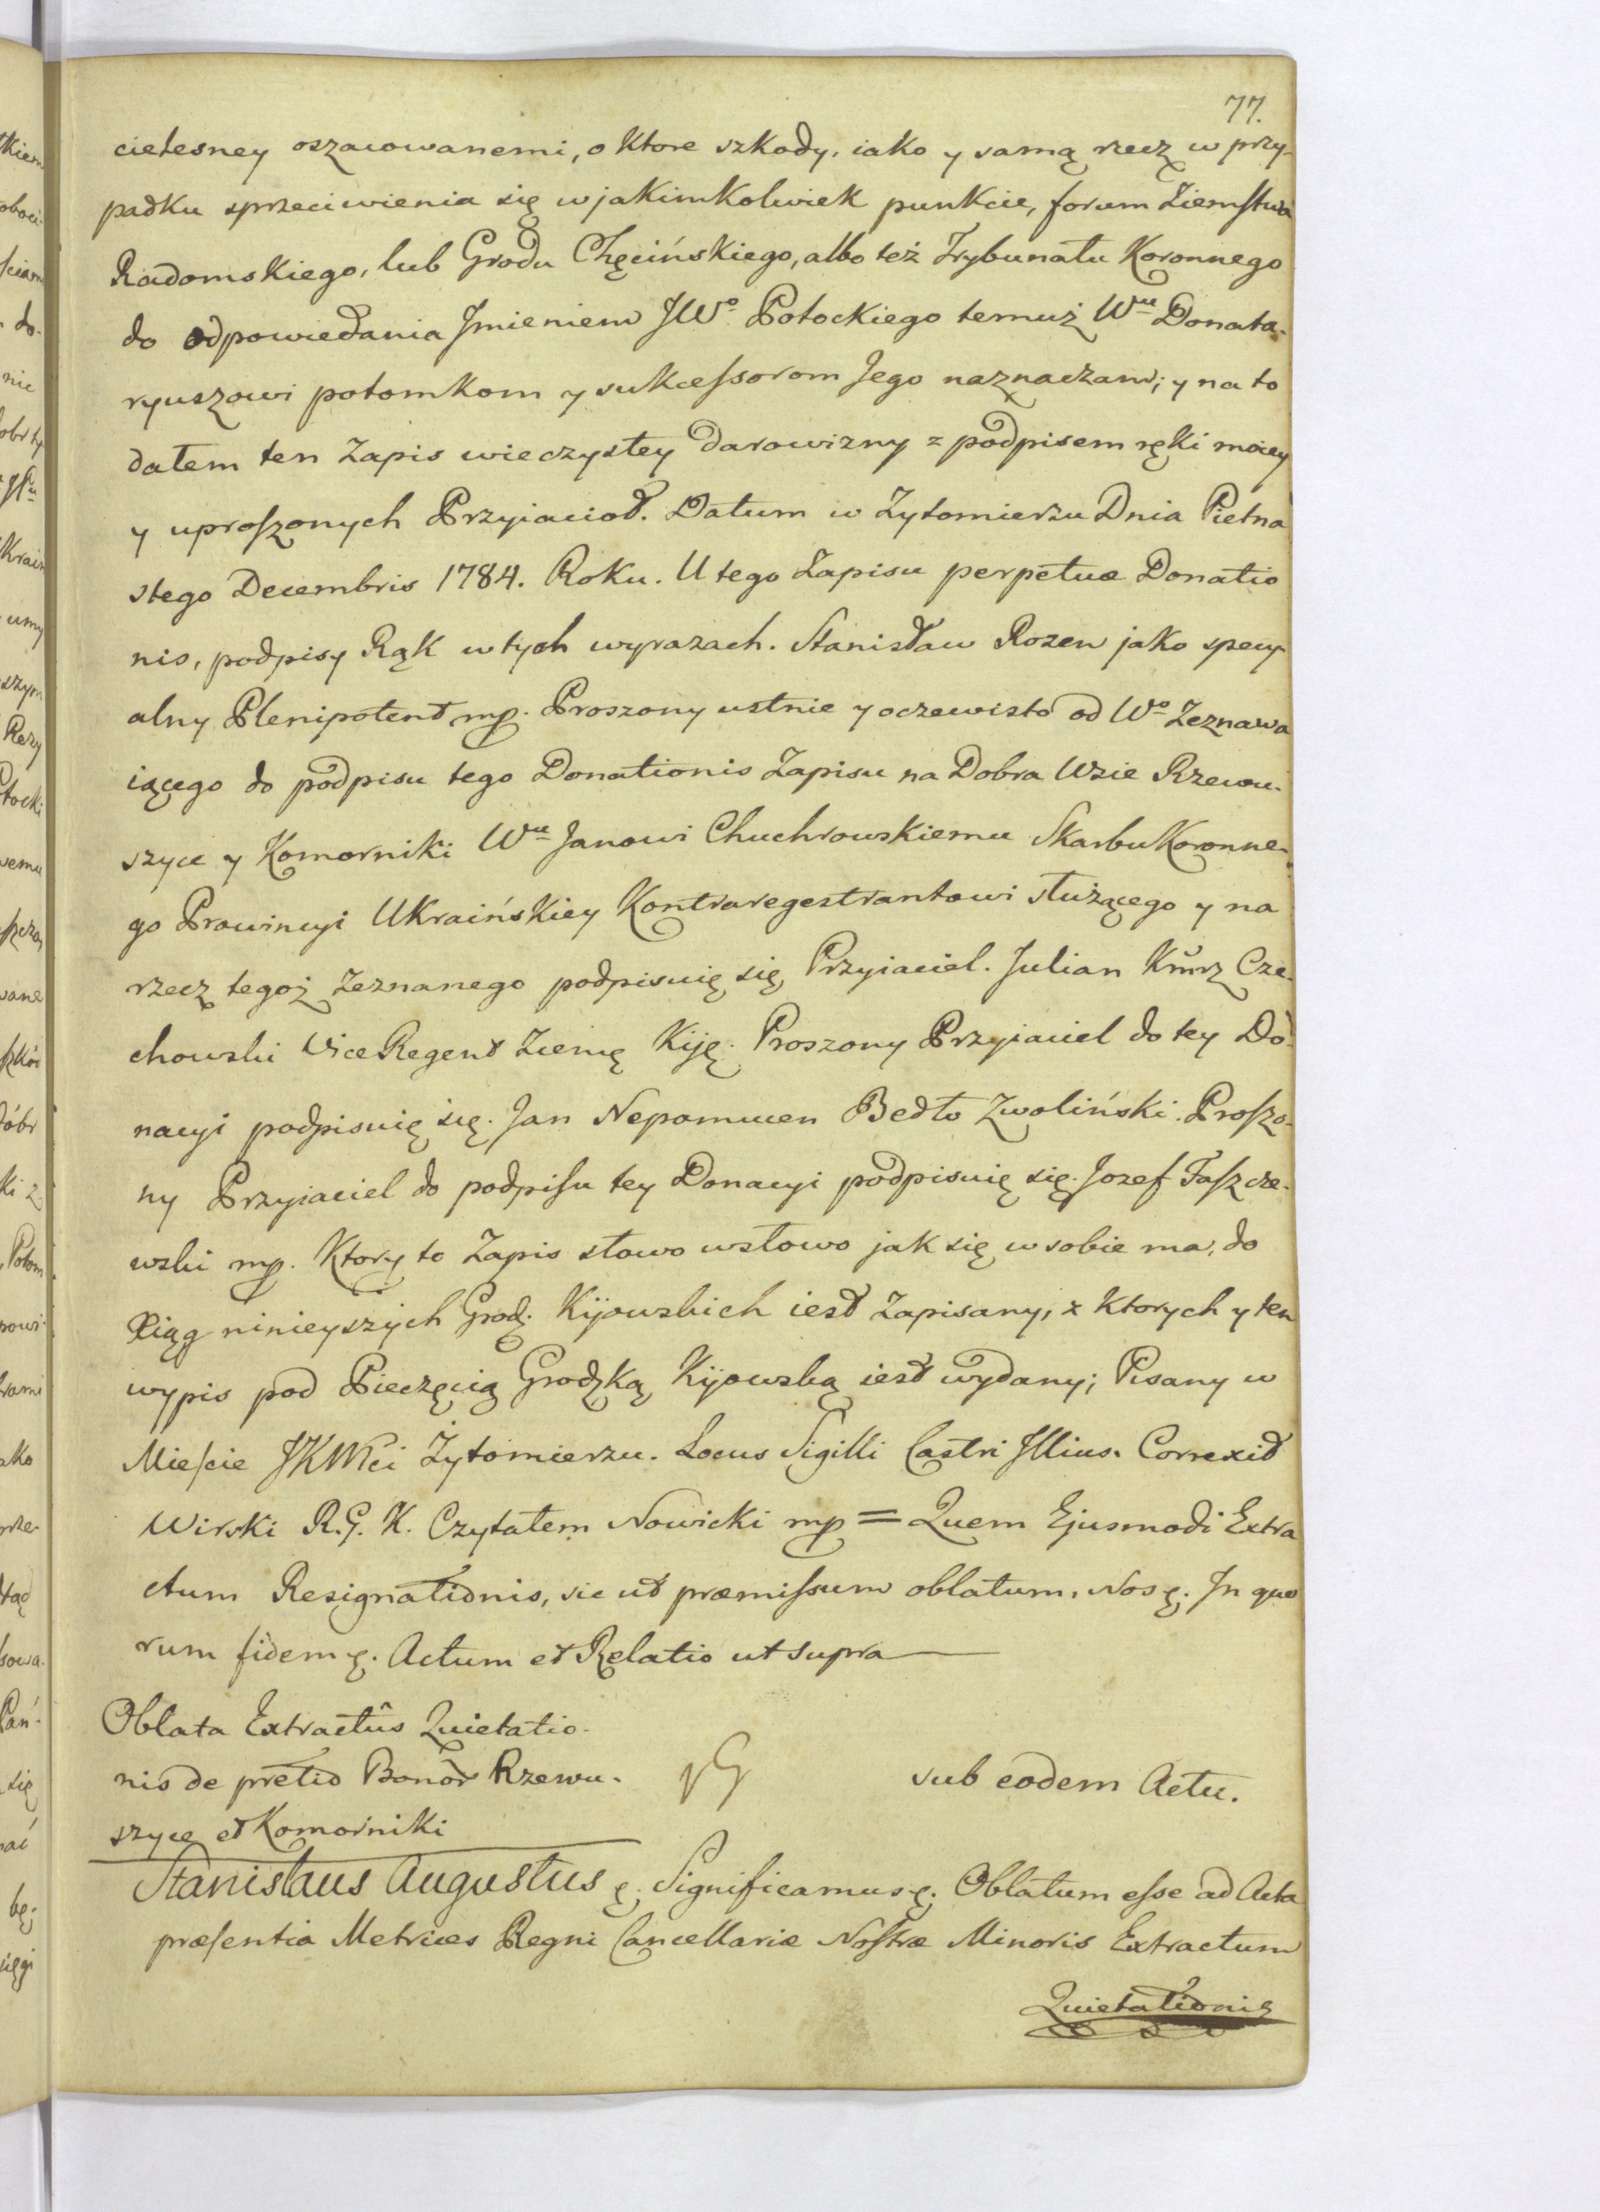 77.
cielesney oszacowanemi, o ktore szkody, iako y samą rzecz w przy-
padku sprzeciwienia się w jakimkolwiek punkcie, forum Ziemstwa
Radomskiego, lub Grodu Chęcińskiego, albo też Trybunału Koronnego
do odpowiedania Jmieniem JWo Potockiego temuż Wmu Donata-
ryuszowi potomkom y sukcessorom Jego naznaczam; y na to
dałem ten Zapis wieczystey darowizny z podpisem ręki moiey
y uproszonych Przyiacioł. Datum w Zytomierzu Dnia Pietna
stego Decembris 1784. Roku. U tego Zapisu perpetuæ Donatio
nis, podpisy Rąk w tych wyrazach. Stanisław Rozen jako specy-
alny Plenipotent mp. Proszony ustnie y oczewisto od Wo Zeznawa
iącego do podpisu tego Donationis Zapisu na Dobra Wsie Rzewu-
szyce y Komorniki Wmu Janowi Chuchrowskiemu Skarbu Koronne-
go Prowincyi Ukraińskiey Kontraregestrantowi służącego y na
rzecz tegoż Zeznanego podpisuię się Przyiaciel. Julian Kmrz Cze-
chowski Vice Regent Ziemę Kiję. Proszony Przyiaciel do tey Do-
nacyi podpisuię się. Jan Nepomucen Bedło Zwoliński. Proszo-
ny Przyiaciel do podpisu tey Donacyi podpisuię się. Jozef Taszcze-
wski mp. Ktory to Zapis słowo wsłowo jak się w sobie ma, do
Xiąg ninieyszych Grodz. Kijowskich iest Zapisany, z Ktorych y ten
wypis pod Pieczęcią Grodzką Kijowską iest wydany; Pisany w
Mieście JKMci Żytomierzu. Locus Sigilli Castri Illius. Correxit
Wirski R. G. K. Czytałem Nowicki mp = Quem Ejusmodi Extra
ctum Resignationis, sic ut præmissum oblatum, Nos ę. In quo
rum fidem ę. Actum et Relatio ut supra
Oblata Extractûs Quietatio-
nis de pretio Bonor Rzewu-
szyce et Komorniki
sub eodem Actu.
Stanislaus Augustus ę. Significamus ę. Oblatum esse ad Acta
præsentia Metrices Regni Cancellariæ Nostræ Minoris Extractum
Quietationis